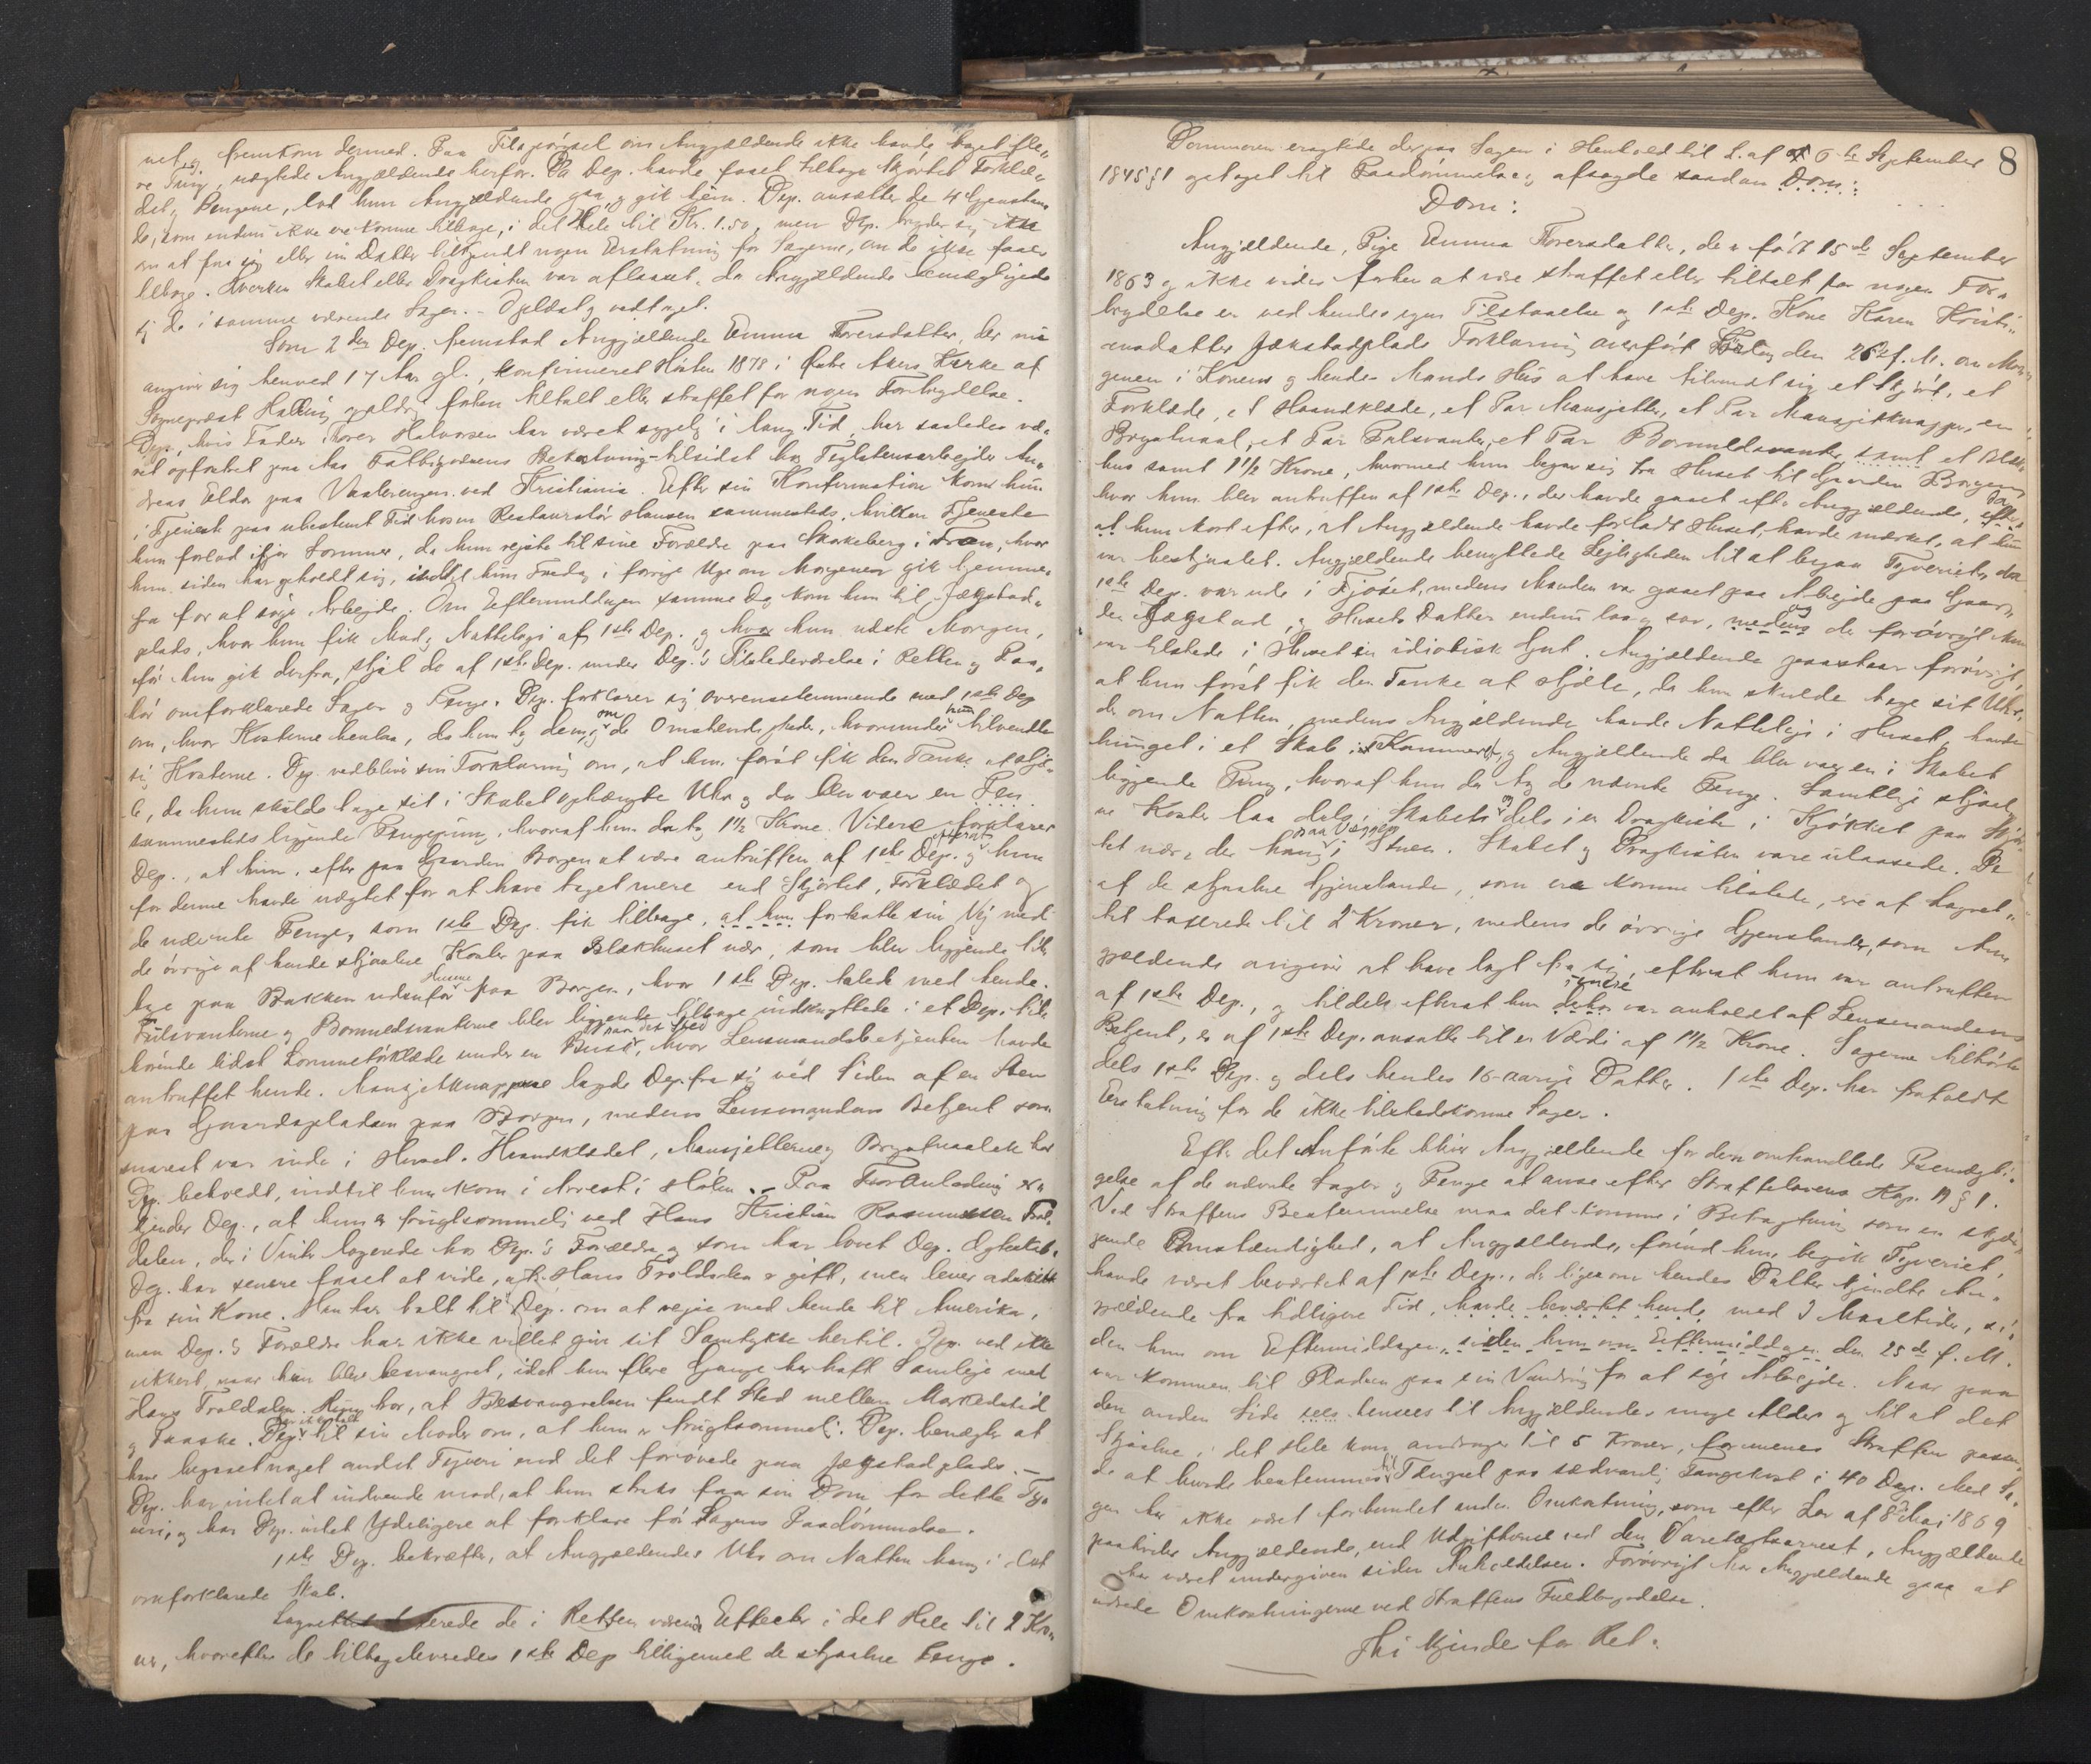 net, og fremkom dermed. Paa Tilspørgsel om Angjældende ikke havde taget fle-
re Ting, nægtede Angjældende herfor. Da Dep. havde faaet tilbage Skjørtet, Forklæ-
det og Pengene, lod hun Angjældende gaa, og gik hjem. Dep. ansætter de 4 Gjenstan-
de, som endnu ikke ere komne tilbage, i det Hele til Kr. 1.50, men Dep. bryder sig ikke
om at faa sig eller sin Datter tilkjendt nogen Erstatning for Sagerne, om de ikke faaes
tilbage. Hverken Skabet eller Dragkisten var aflaaset, da Angjældende bemægtigede
sig de i samme værende Sager. - Oplæst og vedtaget.
Som 2den Dep. fremstod Angjældende Emma Thoresdatter, der nu
angiver sig henved 17 Aar gl., konfirmeret Høsten 1878 i Østre Akers Kirke af
Sognepræst Halling, og aldrig forhen tiltalt eller straffet for nogen Forbrydelse.
Dep., hvis Fader Thorer Halvorsen har været sygelig i lang Tid, har saaledes væ-
ret opfostret paa Aas Fattigvæsens Bekostning - tilsidst hos Teglstensarbeider An-
dreas Elder paa Vaalerengen ved Kristiania. Efter sin Konfirmation kom hun
i Tjeneste paa ubestemt Tid hos en Restauratør Hansen sammesteds, hvilken Tjeneste
hun forlod ifjor Sommer, da hun rejste til sine Forældre paa Skakeberg i Fron, hvor
hun siden har opholdt sig, indtil hun Fredag i forrige Uge om Morgenen gik hjemme-
fra for at søge Arbejde. Om Eftermiddagen samme Dag kom hun til Jægstad-
plads, hvor hun fik Mad og Natteleje af 1ste Dep. og hvor hun næste Morgen,
før hun gik derfra, stjal de af 1ste Dep. under Dep.'s Tilstedeværelse i Retten og Paa-
hør omforklarede Sager og Penge. Dep. forklarer sig overensstemmende med 1ste Dep
om, hvor Kosterne henlaa, da hun tog dem, og om de Omstændigheder, hvorunder hun tilvendte
sig Kosterne. Dep. vedbliver sin Forklaring om, at hun først fik den Tanke at stjæ-
le, da hun skulde tage sit i Skabet ophængte Uhr og da blev vaer en
sammesteds liggende Pengepung, hvoraf hun da tog 1 1/2 Krone. Videre forklarer
Dep., at hun, efter paa Gaarden Borgen at være antruffen af 1ste Dep. og efterat hun
for denne havde nægtet for at have taget mere end Skjørtet, Forklædet og
de nævnte Penge, som 1ste Dep. fik tilbage, at hun fortsatte sin Vej med
de øvrige af hende stjaalne Koster paa Blækhuset nær, som blev liggende til-
bage paa Bakken udenfor Husene paa Borgen, hvor 1ste Dep. talede med hende.
Pulsvanterne og Bomuldsvanterne blev liggende tilbage indknyttede i et Dep. til-
hørende lidet Lommetørklæde under en Busk paa det Sted, hvor Lensmandsbetjenten havde
antruffet hende. Mansjetknappene lagde Dep. fra sig ved Siden af en Sten
paa Gaardspladsen paa Borgen, medens Lensmandens Betjent som
snarest var inde i Huset. Haandklædet, Mansjetterne og Brystnaalen har
Dep. beholdt, indtil hun kom i Arrest i Hølen. - Paa Foranledning er-
kjender Dep., at hun er frugtsommelig ved Hans Kristian Rasmussen Trol-
dalen, der i Vinter logerede hos Dep.'s Forældre og som har lovet Dep. Ægteskab.
Dep. har senere faaet at vide, at Hans Troldalen er gift, men lever adskilt
fra sin Kone. Han har talt til Dep. om at rejse med hende til Amerika,
men Dep.'s Forældre har ikke villet give sit Samtykke hertil. Dep. ved ikke
sikkert, naar hun blev besvangret, idet hun flere Gange har haft Samleje med
Hans Troldalen. Hun tror, at Besvangrelsen fandt Sted mellem Markedstid
og Paaske. Dep. har ikke talt til sin Moder om, at hun er frugtsommelig. Dep. benægter at
have begaaet noget andet Tyveri end det forøvede paa Jægstadplads. -
Dep. har intet at indvende mod, at hun straks faar sin Dom for dette Ty-
veri, og har Dep. intet Ydeligere at forklare før Sagens Paadømmelse.
1ste Dep. bekræfter, at Angjældendes Uhr om Natten hang i det
omforklarede Skab.
Lagrettet taxerede de i Retten værende Effecter i det Hele til 2 Kro-
ner, hvorefter de tilbageleveredes 1ste Dep tilligemed de stjaalne Penge.
8
Dommeren eragtede derpaa Sagen i Henhold til L. af 6te September
1845 § 1 optaget til Paadømmelse og afsagde saadan Dom:
Dom:
Angjældende, Pige Emma Thoresdatter, der er født 15de September
1863 og ikke vides forhen at være straffet eller tiltalt for nogen For-
brydelse er ved hendes egen Tilstaaelse og 1ste Dep. Kone Karen Kristi-
ansdatter Jækstadplads Forklaring overført Lørdag den 26de f. M. om Mor-
genen i Konens og hendes Mands Hus at have tilvendt sig et Skjørt, et
Forklæde, et Haandklæde, et Par Mansjetter, et Par Mansjetknapper, en
Brystnaal, et Par Pulsvanter, et Par Bomuldsvanter, samt et Blæk-
hus samt 1 1/2 Krone, hvormed hun begav sig fra Huset til Gaarden Borgen,
hvor hun blev antruffen af 1ste Dep., der havde gaaet efter Angjældende, da efter
at hun kort efter, at Angjældende havde forladt Huset, havde mærket, at hun
var bestjaalet. Angjældende benyttede Lejligheden til at begaa Tyveriet, da
1ste Dep. var ude i Fjøset, medens Manden var gaaet paa Arbejde paa Gaar-
den Jægstad, og Husets Datter endnu laa og sov, medens og der forøvrigt kun
var tilstede i Huset en idiotisk Gut. Angjældende paastaar forøvrigt,
at hun først fik den Tanke at stjæle, da hun skulde tage sit Uhr,
der om Natten, medens Angjældende havde Natteleje i Huset, havde
hængt i et Skab i Kammeret, og Angjældende da blev vaer en i Skabet
liggende Pung, hvoraf hun da tog de nævnte Penge. Samtlige stjaal-
ne Koster laa dels i Skabet og dels i en Dragkiste i Kjøkket paa Skjør-
tet nær, der hang paa Væggen i Stuen. Skabet og Dragkisten vare ulaasede. De
af de stjaalne Gjenstande, som ere komne tilstede, ere af Lagret-
tet taxerede til 2 Kroner, medens de øvrige Gjenstande, som An-
gjældende angiver at have lagt fra sig, efterat hun var antruffen
af 1ste Dep., og tildels efterat hun senere var anholdt af Lensmandens
Betjent, er af 1ste Dep. ansatte til en Værdi af 1 1/2 Krone. Sagerne tilhørte
dels 1ste Dep. og dels hendes 16-aarige Datter. 1ste Dep. har frafaldt
Erstatning for de ikke tilstedekomne Sager.
Efter det Anførte bliver Angjældende for den omhandlede Bemægti-
gelse af de nævnte Sager og Penge at anse efter Straffelovens Kap. 19 § 1.
Ved Straffens Bestemmelse maa det komme i Betragtning som en skjær-
pende Omstændighed, at Angjældende, forind hun begik Tyveriet,
havde været beværtet af 1ste Dep., der ligesom hendes Datter kjendte An-
gjældende fra tidligere Tid, havde beværtet hende med 3 Maaltider, si-
den hun om Eftermiddagen, siden hun om Eftermiddagen den 25de f. M.
var kommen til Pladsen paa sin Vandring for at søge Arbejde. Naar paa
den anden Side sees hensees til Angjældendes unge Alder og til at det
Stjaalne i det Hele kun andrager til 5 Kroner, formenes Straffen passen-
de at burde bestemmes til Fængsel paa sædvanlig Fangekost i 40 Dage. Med Sa-
gen har ikke været forbundet anden Omkostning, som efter Lov af 8de Mai 1869
paahviler Angjældende, end Udgifterne ved den Varetægtsarrest, Angjældende
har været undergiven siden Anholdelsen. Forøvrigt har Angjældende gaaa at
udrede Omkostningerne ved Straffens Fuldbyrdelse.
Thi kjendes for Ret: